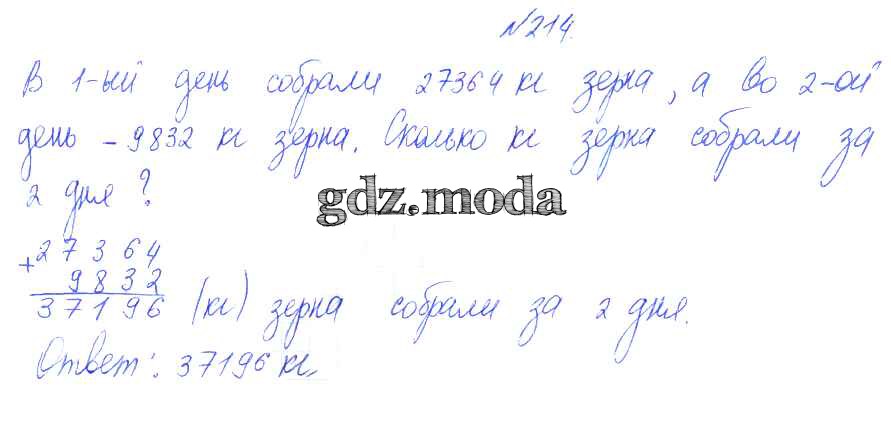 №214.
В 1-ый день собрали 27364 кг зерна, а во 2-ой
день - 9832 кг зерна. Сколько кг зерна собрали за
2 дня?
gdz.moda
+27364
9832
37196 (кг) зерна собрали за 2 дня.
Ответ: 37196 кг.